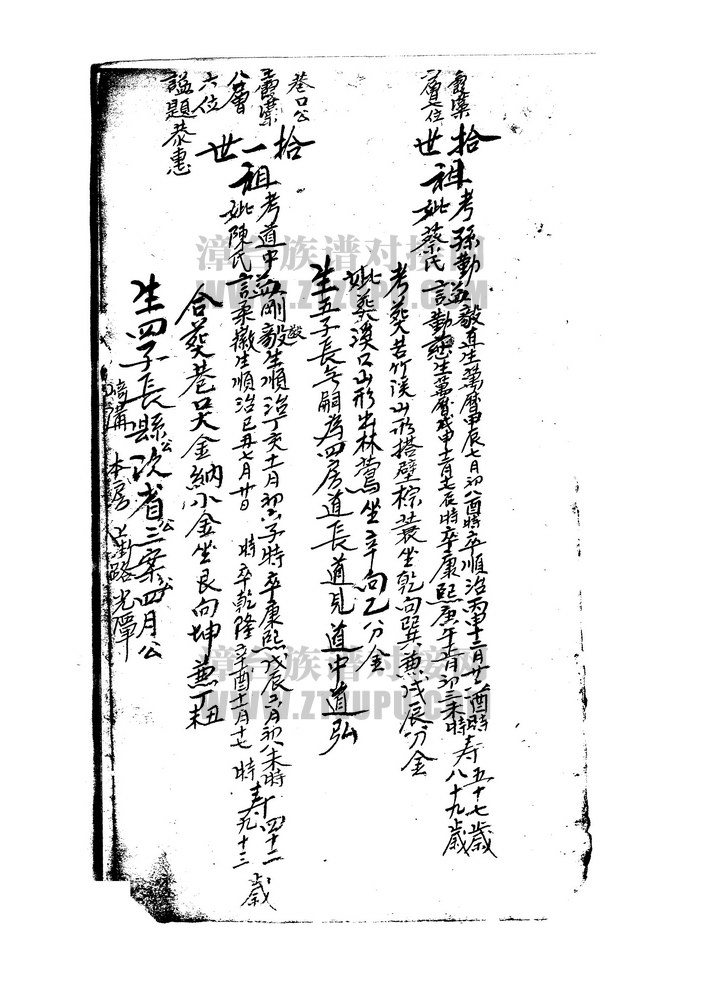 壽藁
層七位
拾世
祖考孫勤益毅直生萬曆甲辰七月初八酉時卒順治丙申十二月廿酉時壽五十七歲
妣蔡氏言勤慈生萬曆戊申十二月七辰時卒康熙庚午十一月初三未時壽八十九歲
考葬苦竹溪山形搭壁棕蓑坐乾向巽兼戊辰分金
妣葬溪口山形出林鶯坐辛向乙分金
生五子長無嗣為四房道長道見道中道弘
巷口公
壽藁
八層
六位
謚題恭惠
拾一世
祖考道中益剛毅生順治丁亥十一月初六子時卒康熙戊辰六月初八未時 壽四十二
妣陳氏言柔徽生順治己丑七月廿日 時卒乾隆辛酉十一月十七 時壽九十三歲
合葬巷口大金納小金坐艮向坤兼丁未丑
生四子長縣公次省公三案公四月公
本房